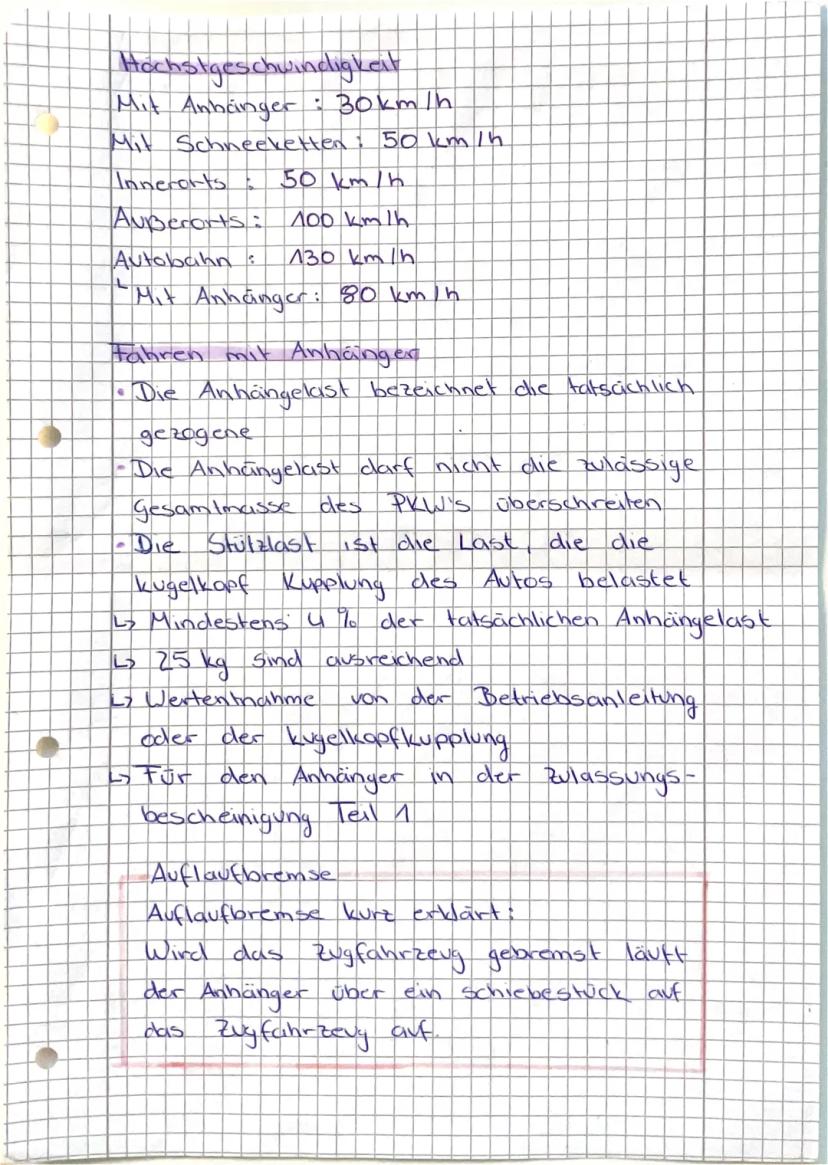 Höchstgeschwindigkeit
Mit Anhänger : 30 km/h
Mit Schneeketten : 50 km/h
Innerorts : 50 km/h
Außerorts : 100 km/h
Autobahn : 130 km/h
↳ Mit Anhänger : 80 km/h
Fahren mit Anhänger
• Die Anhängelast bezeichnet die tatsächlich
gezogene
• Die Anhängelast darf nicht die zulässige
Gesamtmasse des PKW's überschreiten
• Die Stützlast ist die Last, die die
Kugelkopf Kupplung des Autos belastet
↳ Mindestens 4 % der tatsächlichen Anhängelast
↳ 25 kg sind ausreichend
↳ Wertentnahme von der Betriebsanleitung
oder der Kugelkopfkupplung
↳ Für den Anhänger in der Zulassungs-
bescheinigung Teil 1
Auflaufbremse
Auflaufbremse kurz erklärt :
Wird das Zugfahrzeug gebremst läuft
der Anhänger über ein Schiebestück auf
das Zugfahrzeug auf.